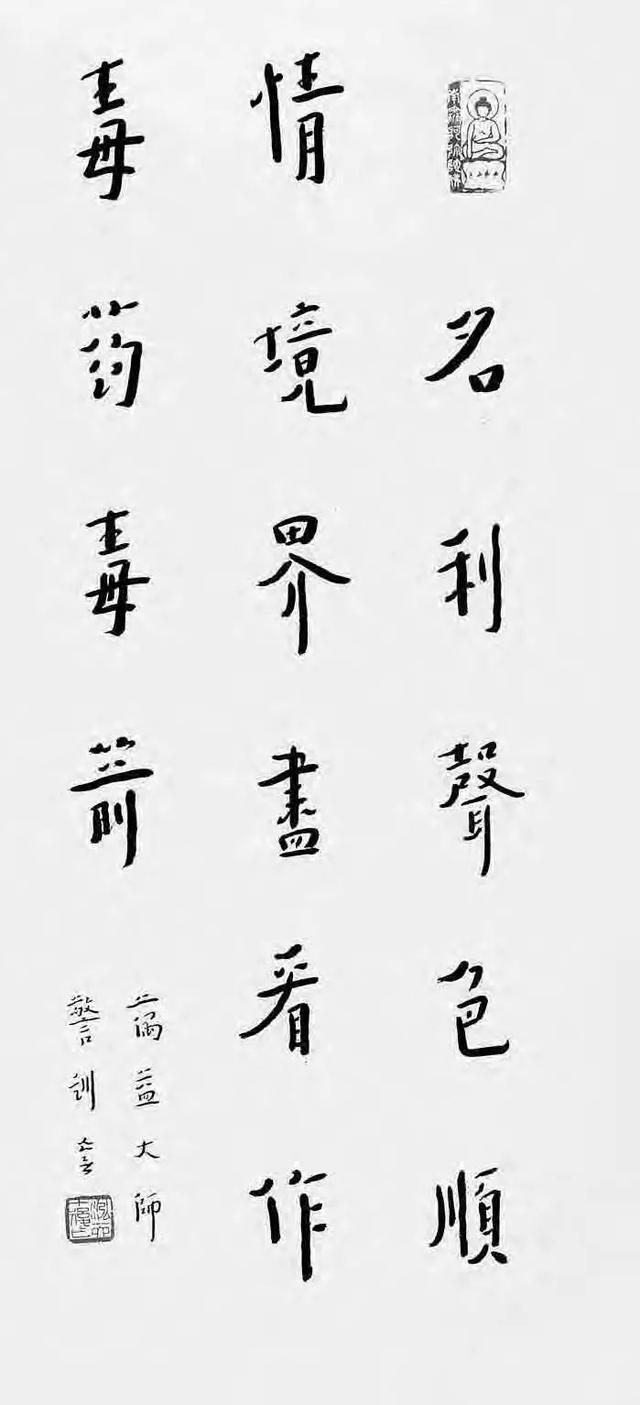 名利聲色順
情境界盡看作
毒药毒箭
蕅益大師
警訓